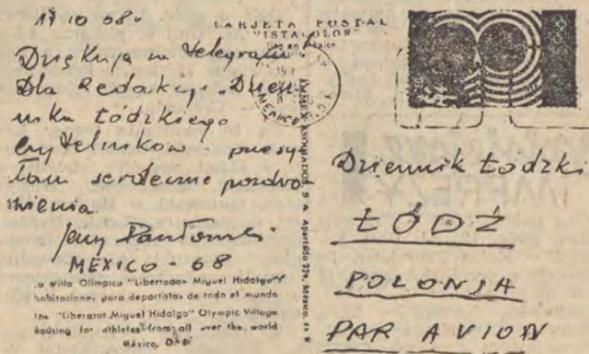 17 10 68.
TARJETA POSTAL
"VISTACOLOR"
Dziękuję za telegram!
Dla Redakcji "Dzien-
nika Łódzkiego
czytelników przesy-
łam serdeczne pozdro-
wienia
Jerzy
MEXICO - 68
La Villa Olímpica "Libertador Miguel Hidalgo"
habitaciones para deportistas de todo el mundo
the "Liberator Miguel Hidalgo" Olympic Village
housing for athletes from all over the world
México, D.F.
AMMEX ASOCIADOS, S. A. Apartado México,
MEXICO
Dziennik Łódzki
ŁÓDŹ
POLONIA
PAR AVION